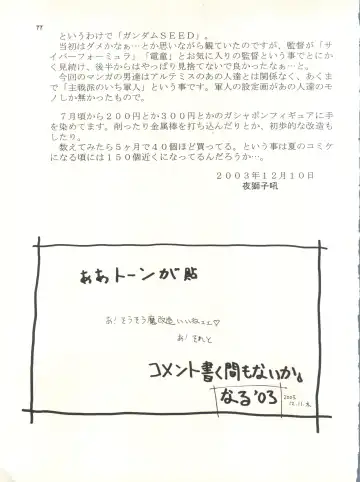 というわけで「ガンダムＳＥＥＤ」。
当初はダメかなぁ…とか思いながら観ていたのですが、監督が「サ
イバーフォーミュラ」「電童」とお気に入りの監督という事でとにか
く見続け、後半からはやっぱり見捨てないで良かったなぁーと。
今回のマンガの男達はアルテミスのあの人達とは関係なく、あくま
で「主戦派のいち軍人」という事です。軍人の設定画があの人達のモ
ノしか無かったもので。
７月頃から２００円とか３００円とかのガシャポンフィギュアに手
を染めてます。削ったり金属棒を打ち込んだりとか、初歩的な改造も
したり。
数えてみたら５ヶ月で４０個ほど買ってる。という事は夏のコミケ
になる頃には１５０個近くになってるんだろうか…。
２００３年１２月１０日
夜獅子吼
ああトーンが貼
あ！そうそう魔改造いいねェ♡
あ！それと
コメント書く間もないか。
なる'03
2003
12.11.